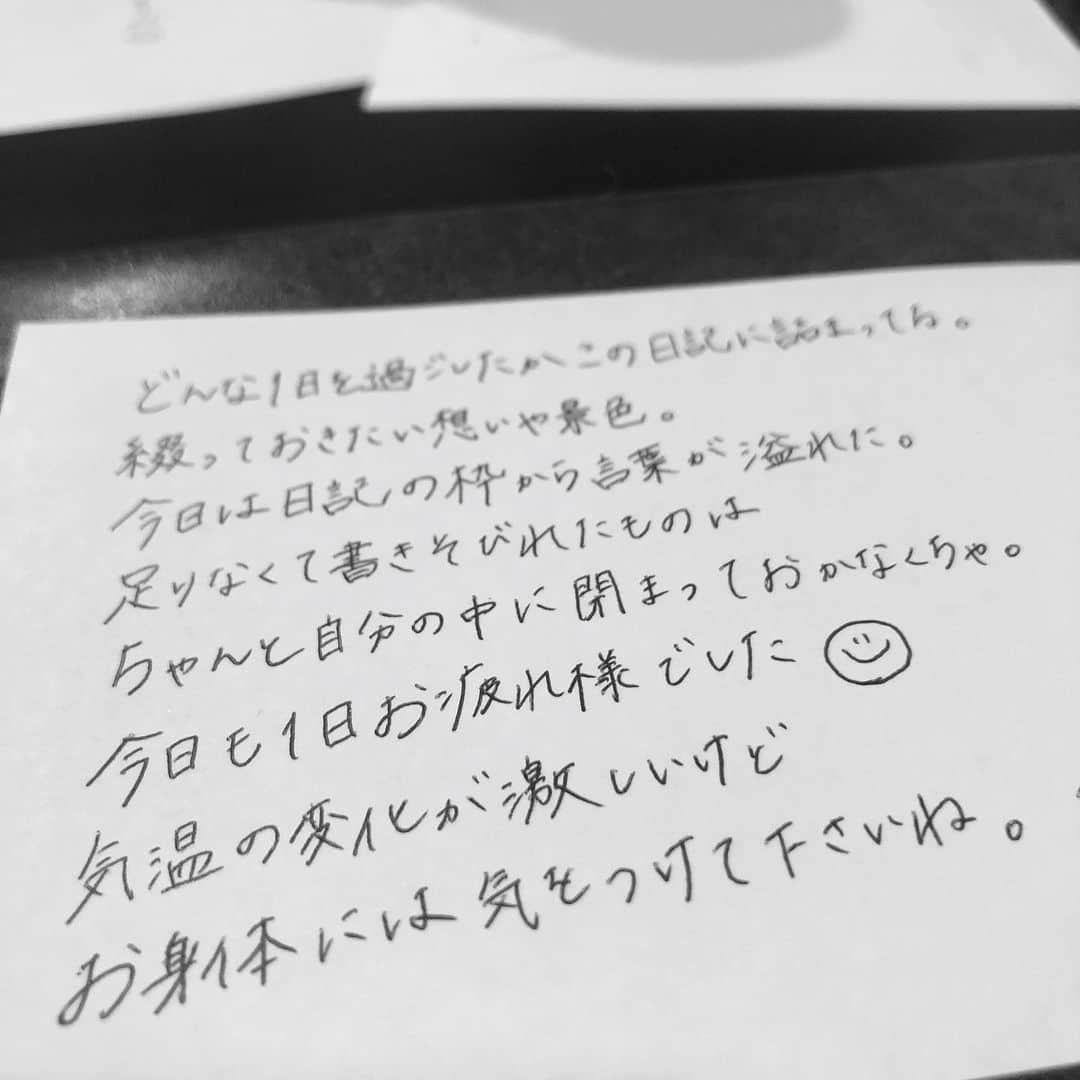 どんな1日を過ごしたかこの日記に詰まってる。
綴っておきたい想いや景色。
今日は日記の枠から言葉が溢れた。
足りなくて書きそびれたものは
ちゃんと自分の中に閉まっておかなくちゃ。
今日も1日お疲れ様でした
気温の変化が激しいけど
お身体には気をつけて下さいね。